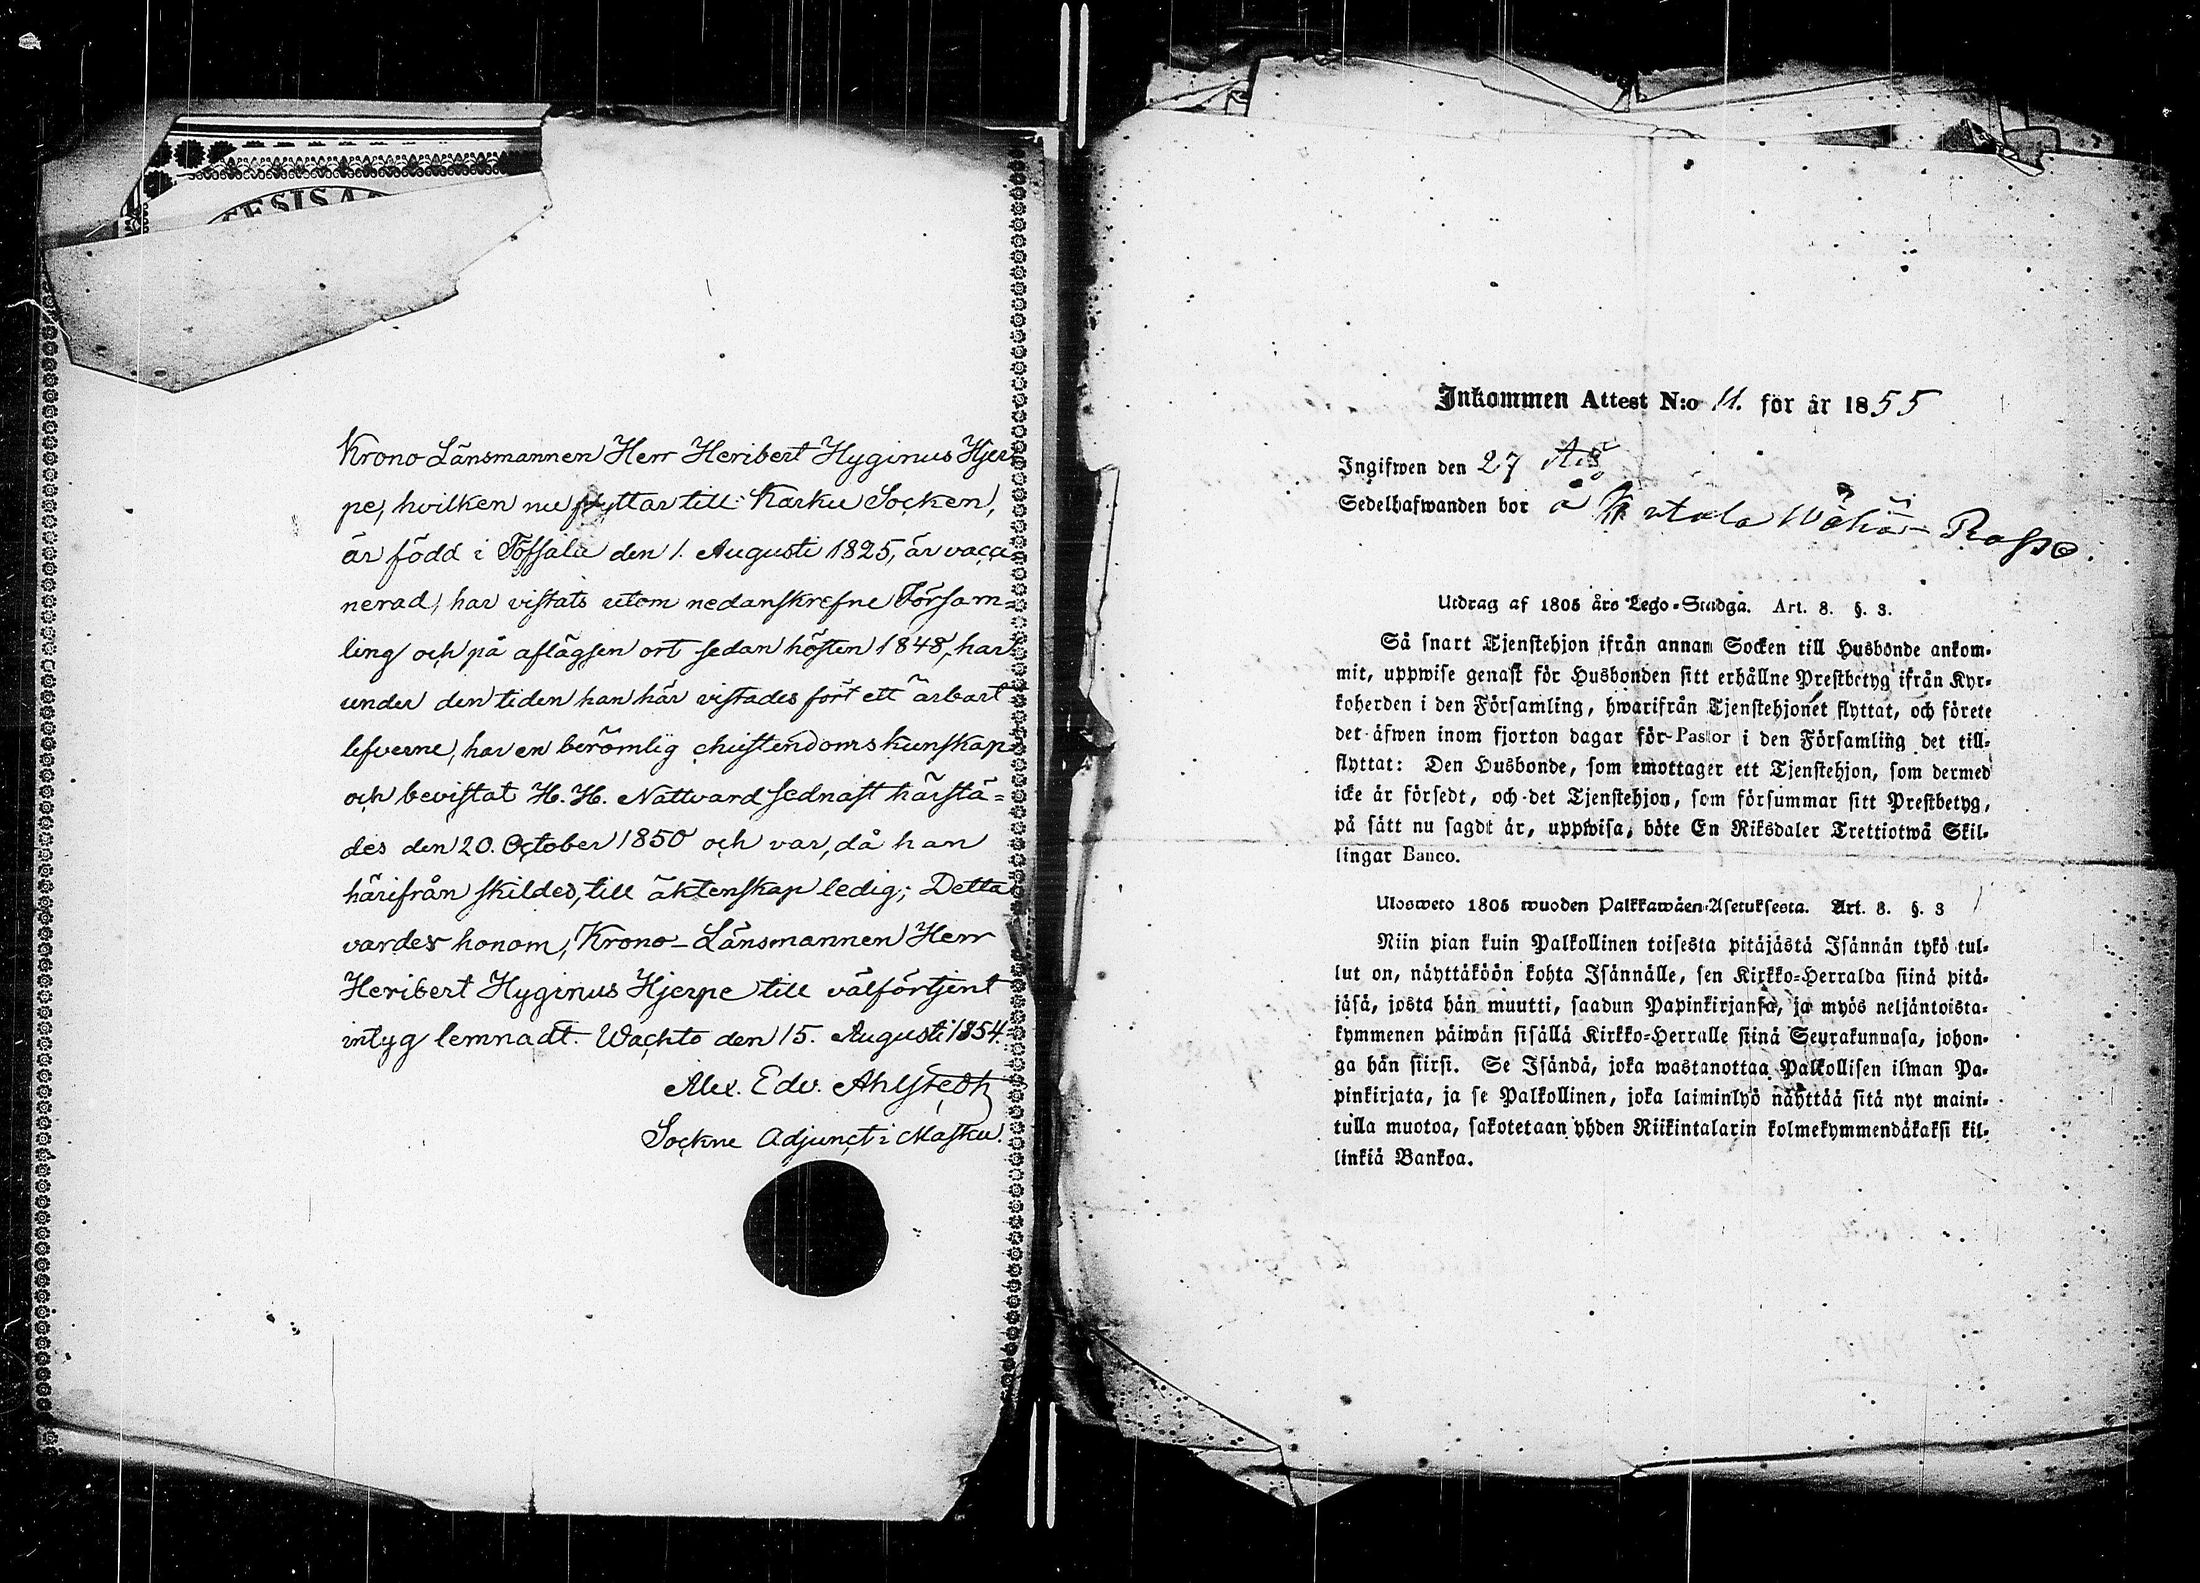 Krono Länsmannen Herr Heribert Hyginus Hjer
pe, hvilken nu flyttar till Karku Socken,
är född i Töffsala den 1. Augusti 1825, är vacci
nerad, har vistats utom nedanskrefne Försam=
ling och på aflägsen ort sedan hösten 1848, har
under den tiden han här vistades fört ett ärbart
lefverne, har en berömlig christendoms kunskap
och bevistat H. H. Nattvard sednast härstä=
des den 20. October 1850 och var, då han
härifrån skildes, till äktenskap ledig; Detta
varder honom, Krono-Länsmannen Herr
Heribert Hyginus Hjerpe till välförtjent
intyg lemnadt. Wachto den 15. Augusti 1854.
Alex. Edv. Ahlstedt
Sockne Adjunct i Masku.
Inkommen Attest N:o 11. för år 1855
Ingifwen den 27
Sedelhafwanden bor å
Utdrag af 1805 års Lego-Stadga. Art. 8. §. 3.
Så snart Tjenstehjon ifrån annan Socken till Husbonde ankom-
mit, uppwise genast för Husbonden sitt erhållne Prestbetyg ifrån Kyr-
koherden i den Församling, hwarifrån Tjenstehjonet flyttat, och förete
det äfwen inom fjorton dagar för Pastor i den Församling det till-
flyttat: Den Husbonde, som emottager ett Tjenstehjon, som dermed
icke är försedt, och det Tjenstehjon, som försummar sitt Prestbetyg,
på sätt nu sagdt är, uppwisa, böte En Riksdaler Trettiotwå Skil-
lingar Banco.
Ulosweto 1805 wuoden Palkkawäen-Asetuksesta. Art. 8. §. 3
Niin pian kuin Palkollinen toisesta pitäjästä Isännän tykö tul-
lut on, näyttäköön kohta Isännälle, sen Kirkko-Herralda siinä pitä-
jäsä, josta hän muutti, saadun Papinkirjansa, ja myös neljäntoista-
kymmenen päiwän sisällä Kirkko-Herralle siinä Seurakunnasa, johon-
ga hän siirsi. Se Isändä, joka wastanottaa Palkollisen ilman Pa-
pinkirjata, ja se Palkollinen, joka laiminlyö näyttää sitä nyt maini-
tulla muotoa, sakotetaan yhden Riikintalarin kolmekymmendäkaksi kil-
linkiä Bankoa.